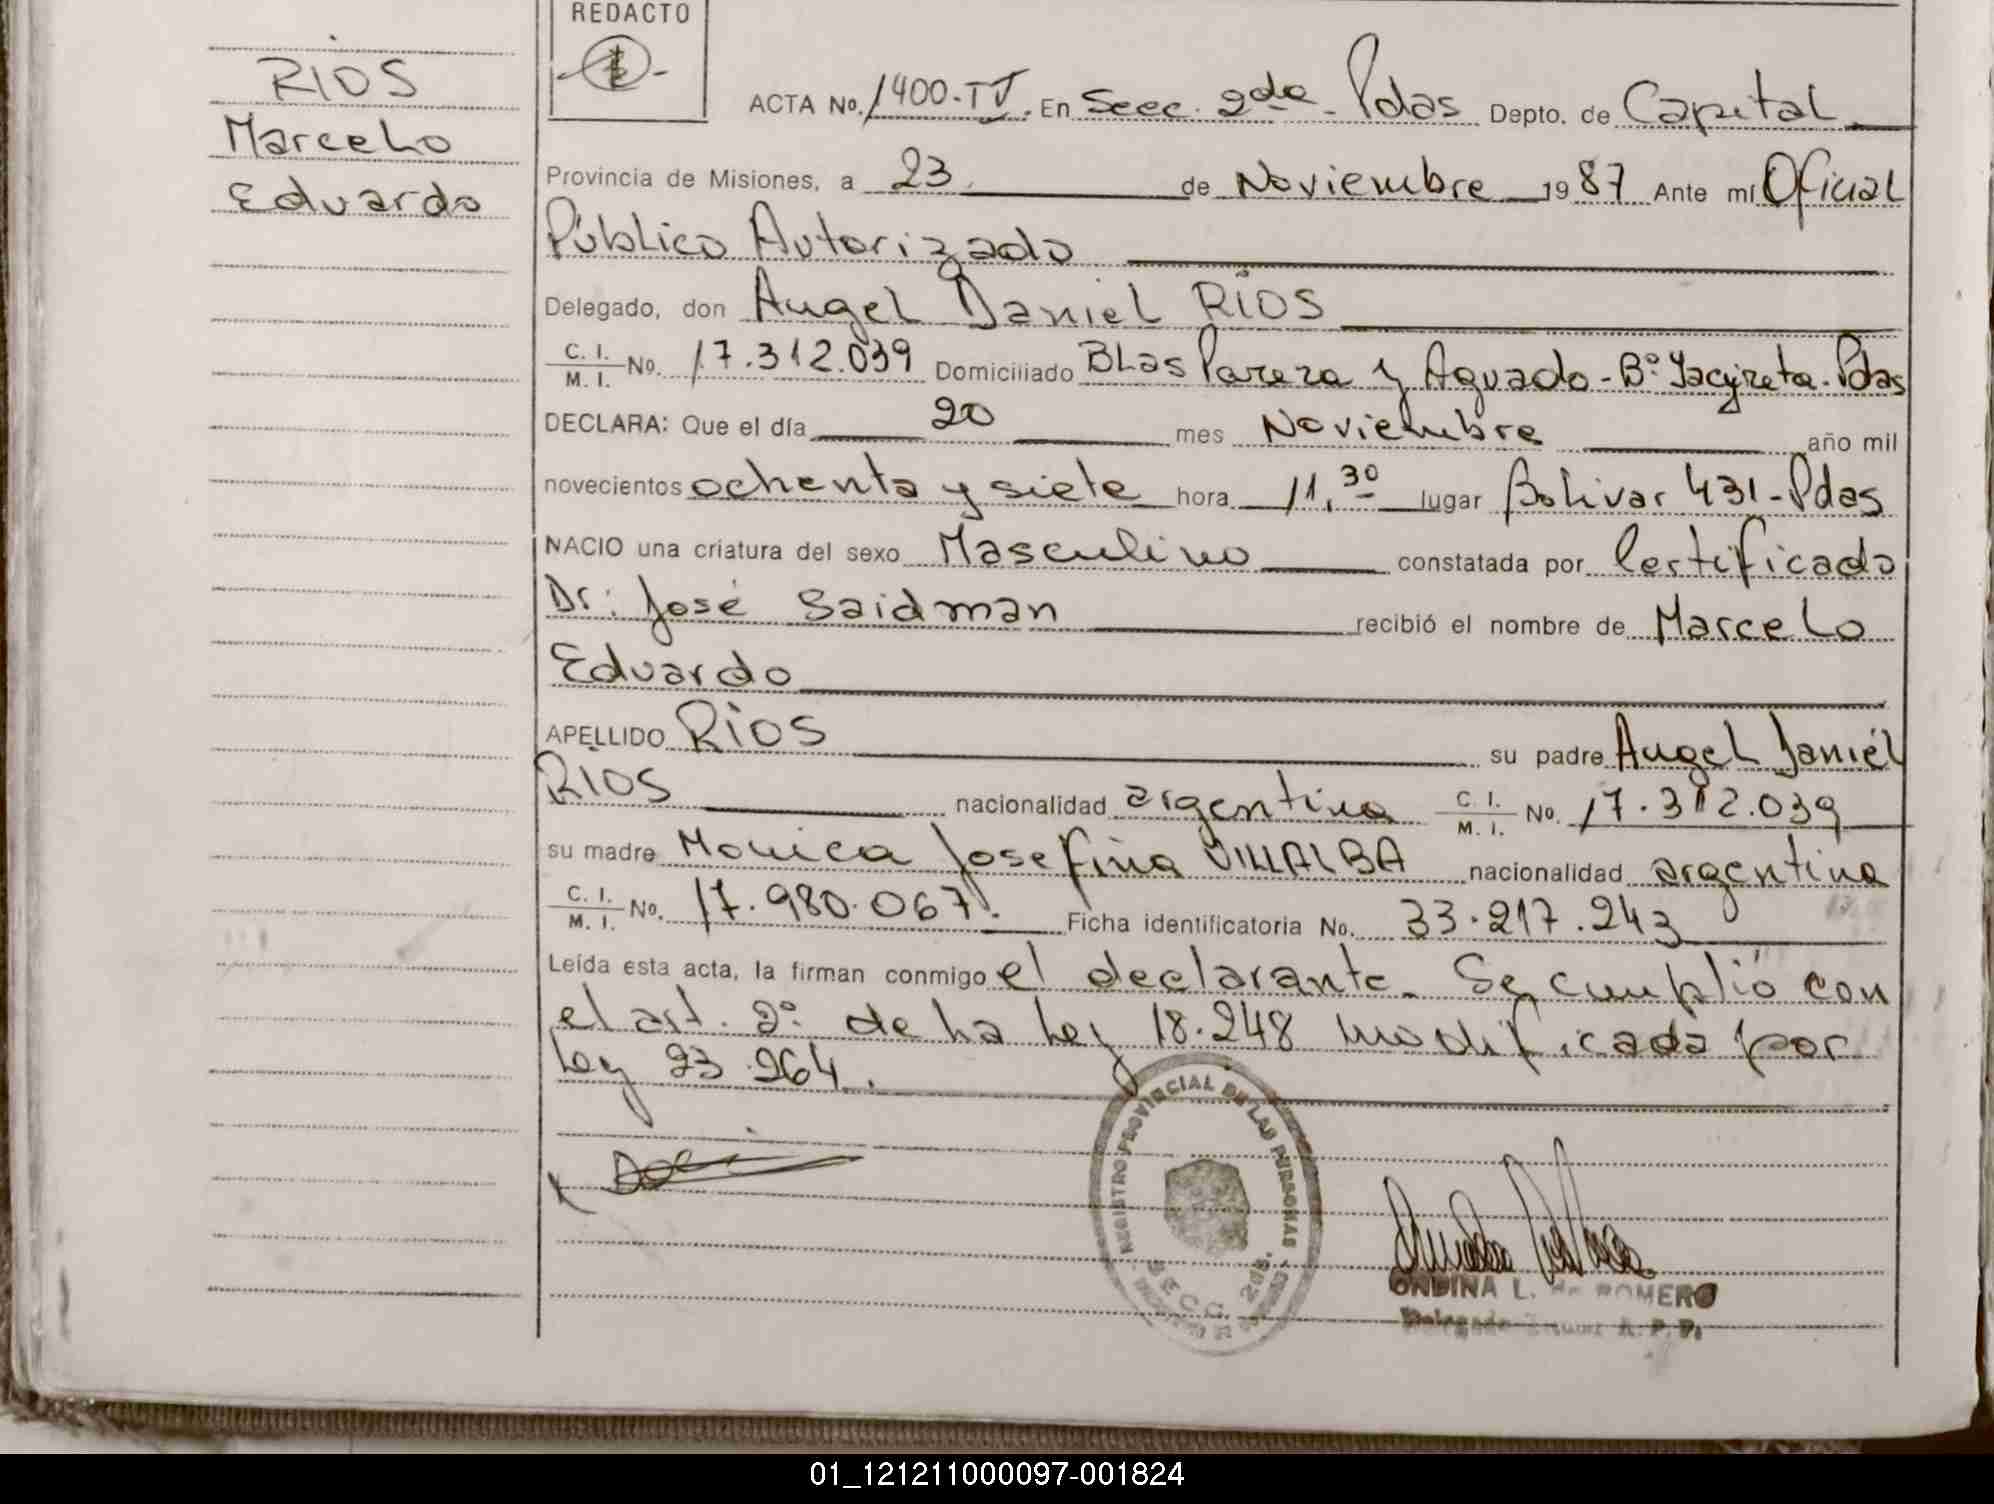 REDACTO
RIOS
Marcelo
Eduardo
ACTA No. 1400-IV. En Secc. 2da - Pdas Depto. de Capital
Provincia de Misiones, a 23 de Noviembre 1987 Ante mí Oficial
Público Autorizado
Delegado, don Angel Daniel RIOS
C. I. / M. I. No. 17.312.039 Domiciliado BLas Parera y Aguado - Bº Yacyreta - Pdas
DECLARA: Que el día 20 mes Noviembre año mil
novecientos ochenta y siete hora 11,30 lugar Bolivar 431 - Pdas
NACIO una criatura del sexo Masculino constatada por Certificado
Dr: José Saidman recibió el nombre de Marcelo
Eduardo
APELLIDO RIOS su padre Angel Daniel
RIOS nacionalidad argentina C. I. / M. I. No. 17.312.039
su madre Monica Josefina VILLALBA nacionalidad argentina
C. I. / M. I. No. 17.980.067. Ficha identificatoria No. 33.217.243
Leída esta acta, la firman conmigo el declarante. Se cumplió con
el art. 2º de la Ley 18.248 modificada por
Ley 23.264.
REGISTRO PROVINCIAL DE LAS PERSONAS
SECC. 2da.
ONDINA L. de ROMERO
Delegada R. P. P.
01_121211000097-001824